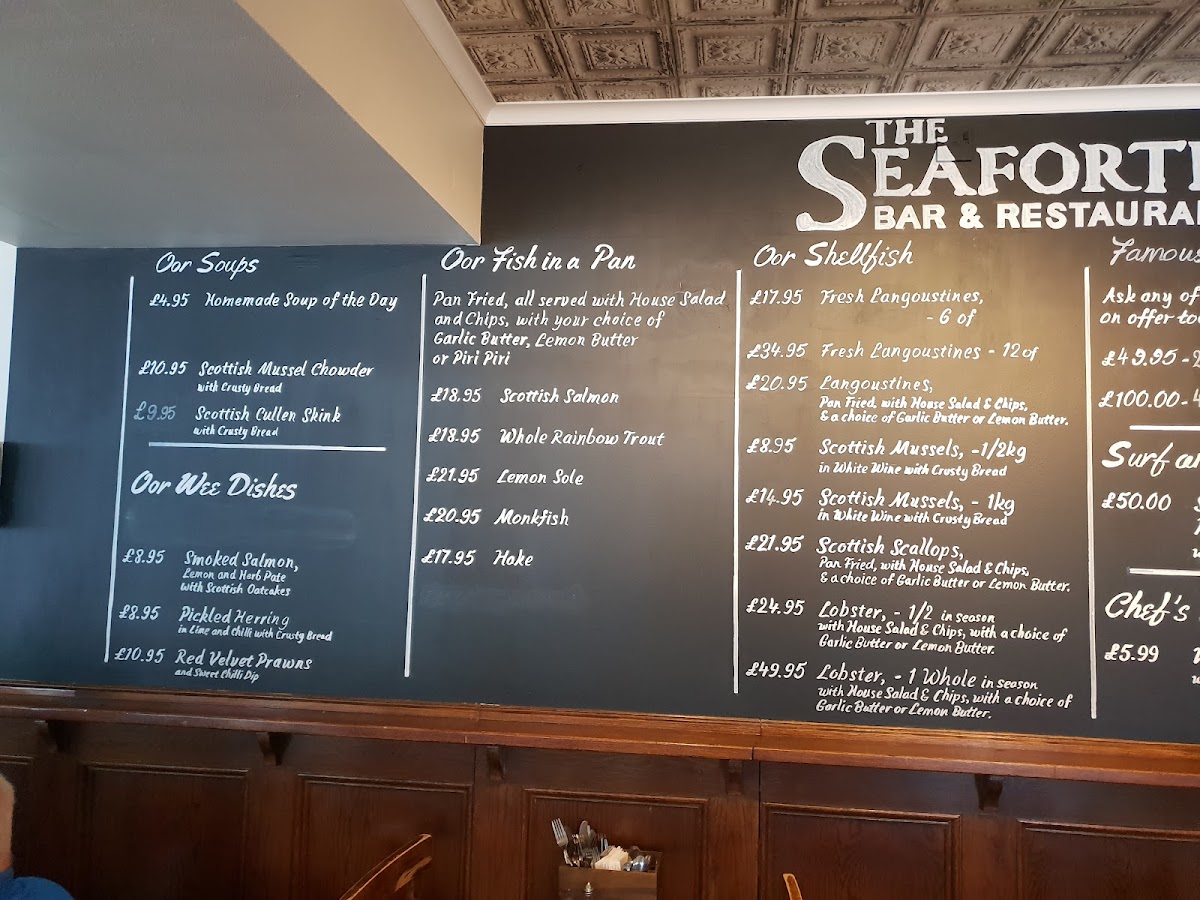 THE
SEAFORT
BAR & RESTAURA
Oor Soups
£4.95 Homemade Soup of the Day
£10.95 Scottish Mussel Chowder
with Crusty Bread
£9.95 Scottish Cullen Skink
with Crusty Bread
Oor Wee Dishes
£8.95 Smoked Salmon,
Lemon and Herb Pate
with Scottish Oatcakes
£8.95 Pickled Herring
in Lime and Chilli with Crusty Bread
£10.95 Red Velvet Prawns
and Sweet Chilli Dip
Oor Fish in a Pan
Pan Fried, all served with House Salad
and Chips, with your choice of
Garlic Butter, Lemon Butter
or Piri Piri
£18.95 Scottish Salmon
£18.95 Whole Rainbow Trout
£21.95 Lemon Sole
£20.95 Monkfish
£17.95 Hake
Oor Shellfish
£17.95 Fresh Langoustines,
- 6 of
£34.95 Fresh Langoustines - 12 of
£20.95 Langoustines,
Pan Fried, with House Salad & Chips,
& a choice of Garlic Butter or Lemon Butter.
£8.95 Scottish Mussels, - 1/2kg
in White Wine with Crusty Bread
£14.95 Scottish Mussels, - 1kg
in White Wine with Crusty Bread
£21.95 Scottish Scallops,
Pan Fried, with House Salad & Chips,
& a choice of Garlic Butter or Lemon Butter.
£24.95 Lobster, - 1/2 in season
with House Salad & Chips, with a choice of
Garlic Butter or Lemon Butter.
£49.95 Lobster, - 1 Whole in season
with House Salad & Chips, with a choice of
Garlic Butter or Lemon Butter.
Famous
Ask any of
on offer to
£49.95 -
£100.00 -
Surf a
£50.00
Chef's
£5.99